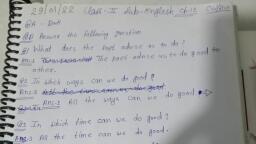 29/01/22 Class-II Sub-English Ch-12 Online
Q.A - Book
Q.B Answer the following question
Q1 What does the poet advise us to do?
Ans:1 The poet advise us to do good to
other.
Q.2 In which ways can we do good?
Ans:2 All the ways can we do
Q3 In which time can we do good?
Ans:3 All the time can we do good.